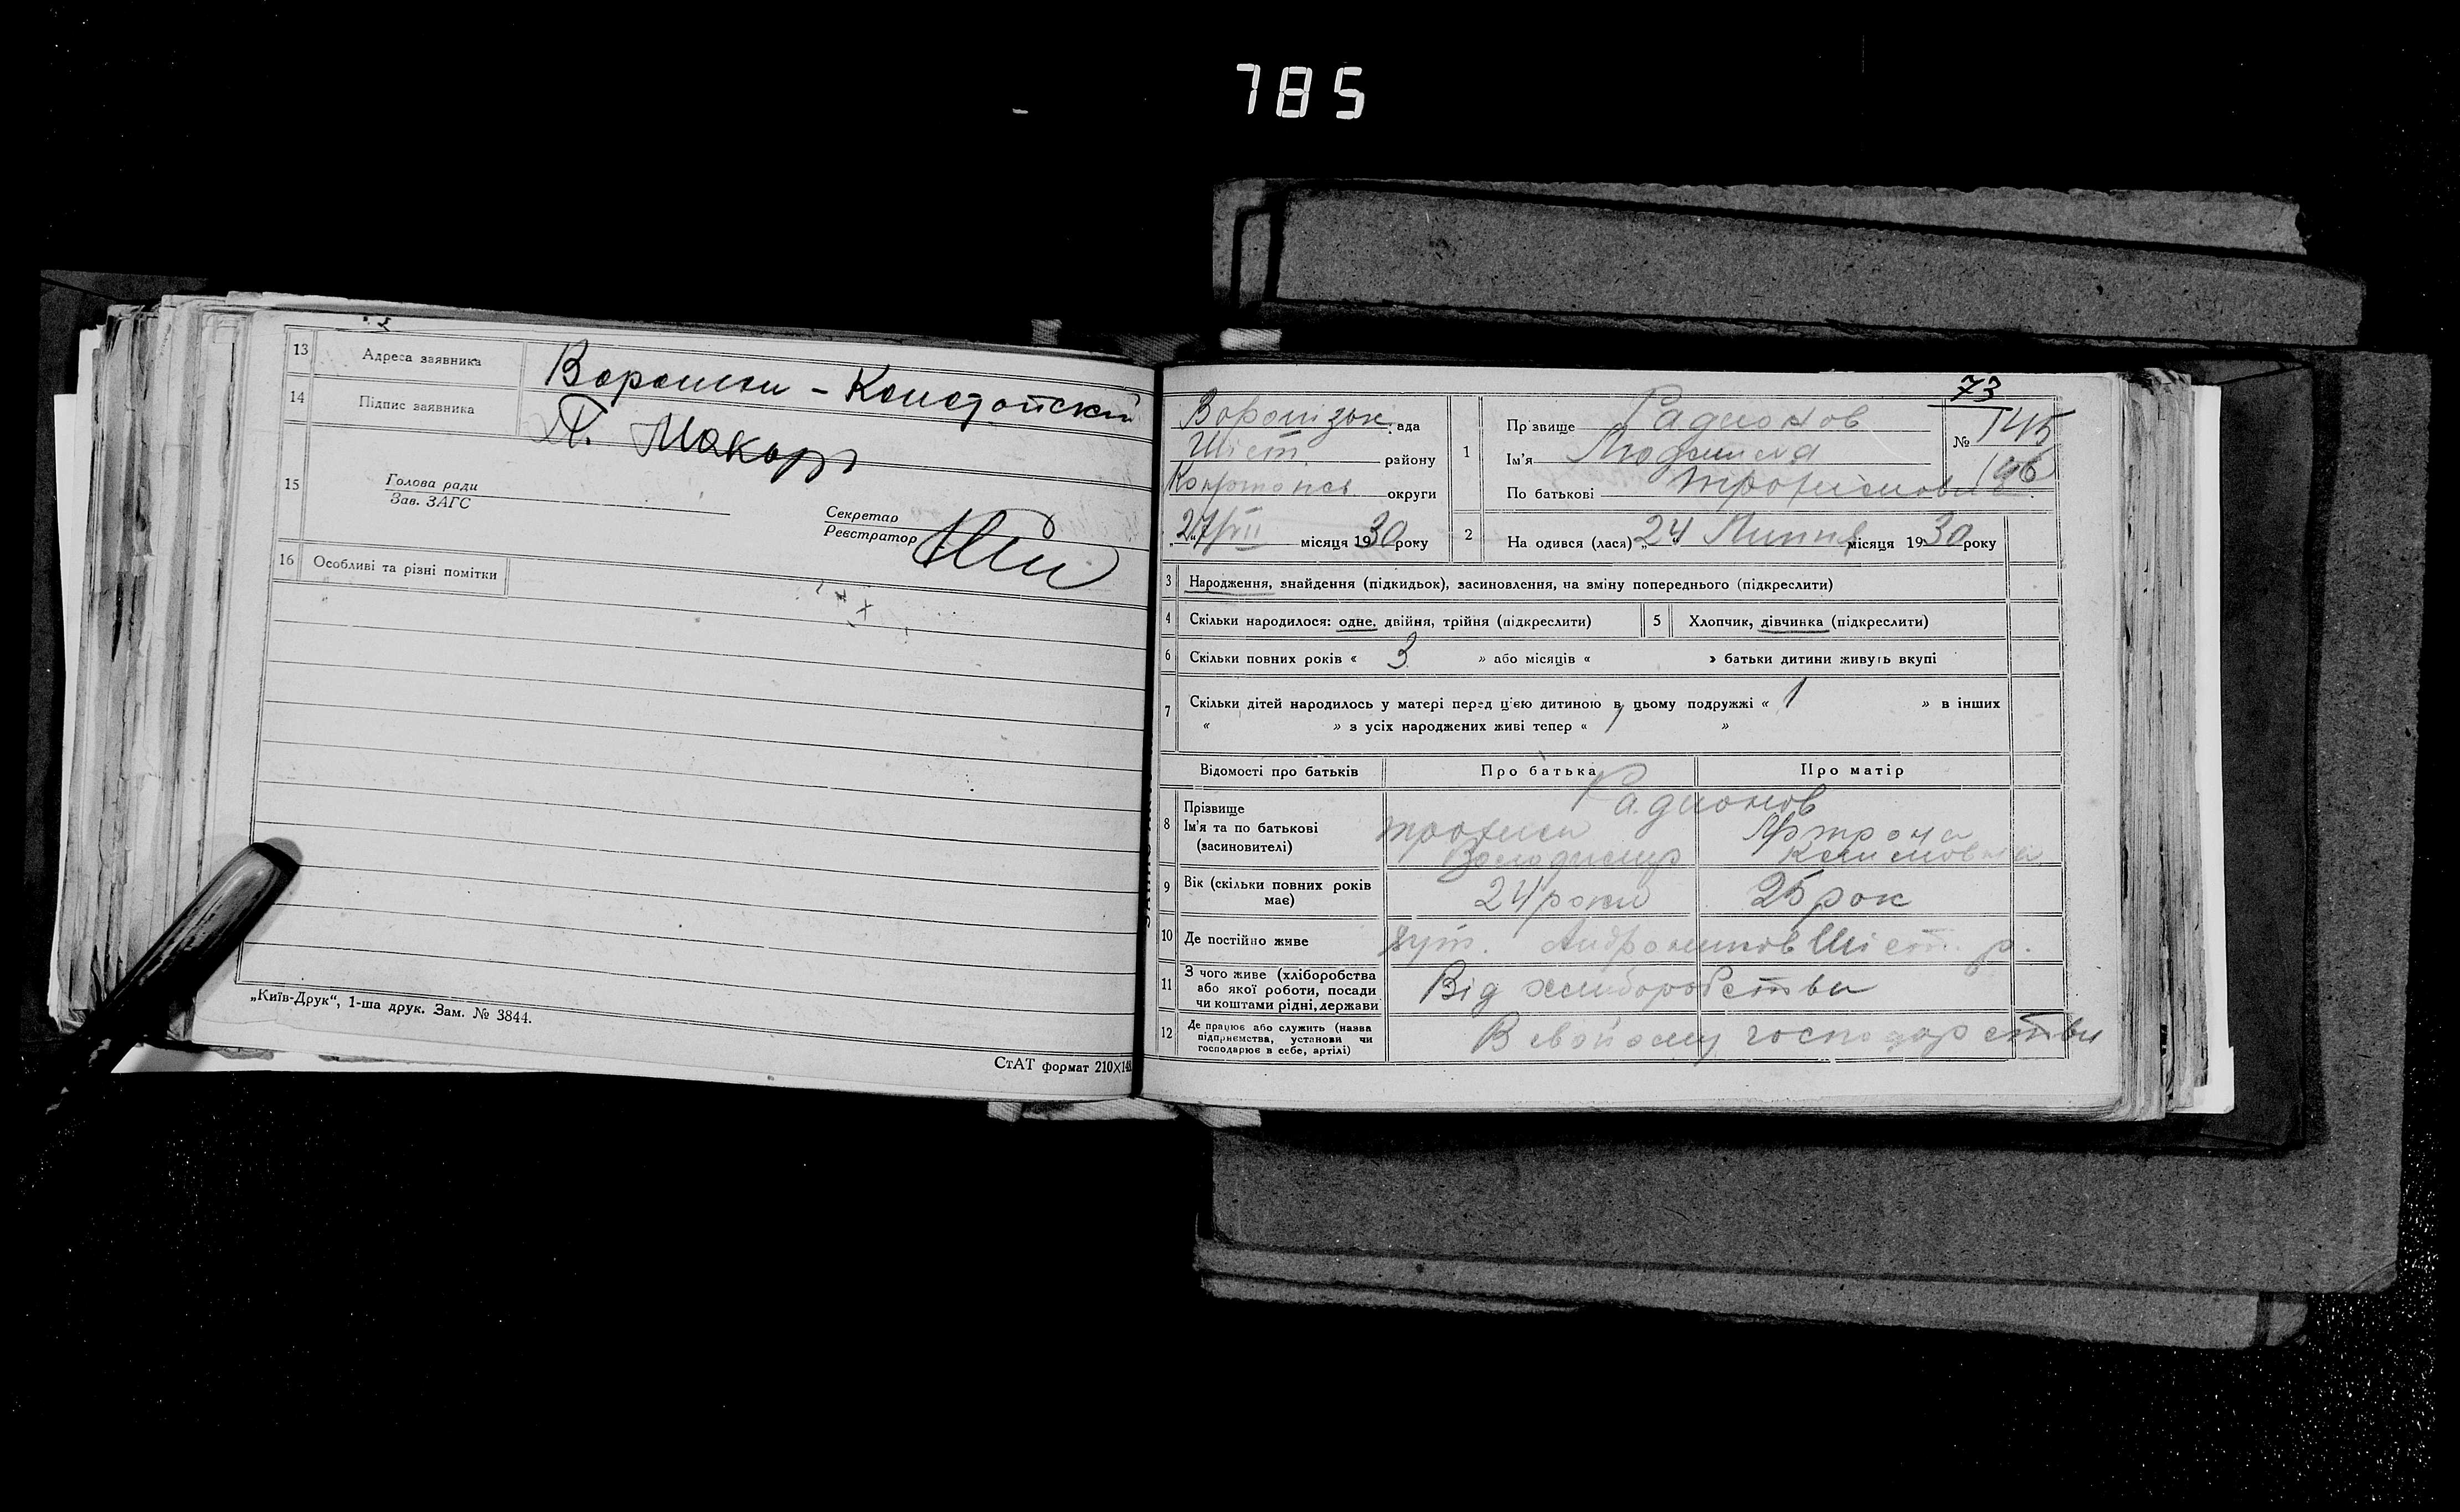 785
13 Адреса заявника
14 Підпис заявника
П. Макарь
15 Голова ради
Зав. ЗАГС
Секретар
Реєстратор
16 Особливі та різні помітки
„Київ-Друк“, 1-ша друк. Зам. № 3844.
СтАТ формат 210×148
73
ада
району
округи
27/VII місяця 1930 року
1 Прізвище Радионов
Ім'я Людмила
По батькові Трофимовна
№ 145
146
2 На одився (лася) „24 Липня місяця 1930 року
3 Народження, знайдення (підкидьок), засиновлення, на зміну попереднього (підкреслити)
4 Скільки народилося: одне, двійня, трійня (підкреслити) 5 Хлопчик, дівчинка (підкреслити)
6 Скільки повних років « 3 » або місяців « » батьки дитини живуть вкупі
7 Скільки дітей народилось у матері перед ц'єю дитиною в цьому подружжі « 1 » в інших
« » з усіх народжених живі тепер « 1 »
Відомості про батьків Про батька Про матір
8 Прізвище Радионов
Ім'я та по батькові Трофим
(засиновителі) Володимир
9 Вік (скільки повних років має) 24 роки 25 рок
10 Де постійно живе хут. Андроников Шіст. р.
11 З чого живе (хліборобства або якої роботи, посади чи коштами рідні, держави Від хлиборобства
12 Де працює або служить (назва підприємства, установи чи господарює в себе, артілі) В свойому господарстви